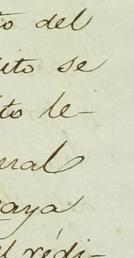 to del
ito se
to le-
eral
aya
l rédi-